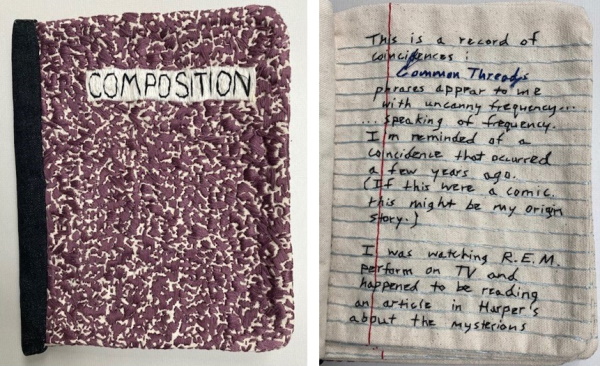 COMPOSITION
This is a record of
coincidences:
Common Threads
phrases appear to me
with uncanny frequency...
...speaking of frequency.
I'm reminded of a
coincidence that occurred
a few years ago.
(If this were a comic,
this might be my origin
story.)
I was watching R.E.M.
perform on TV and
happened to be reading
an article in Harper's
about the mysterious